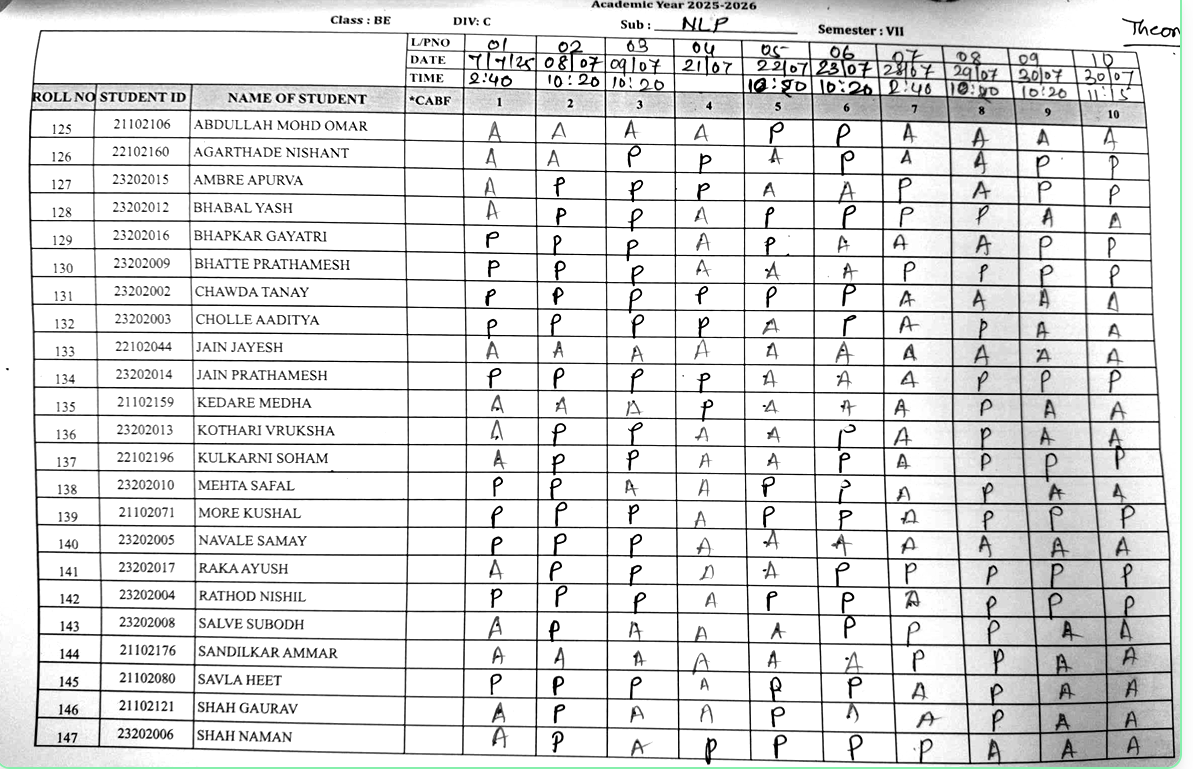 Academic Year 2025-2026
Class : BE DIV: C Sub : NLP Semester : VII
Theory
L/PNO 01 02 03 04 05 06 07 08 09 10
DATE 7/7/25 08/07 09/07 21/07 22/07 23/07 28/07 29/07 20/07 20/07
TIME 2:40 10:20 10:20 10:20 10:20 2:40 10:20 10:20 11:15
ROLL NO STUDENT ID NAME OF STUDENT *CABF 1 2 3 4 5 6 7 8 9 10
125 21102106 ABDULLAH MOHD OMAR A A A A P P A A A A
126 22102160 AGARTHADE NISHANT A A P P A P A A P P
127 23202015 AMBRE APURVA A P P P A A P A P P
128 23202012 BHABAL YASH A P P A P P P P A A
129 23202016 BHAPKAR GAYATRI P P P A P A A A P P
130 23202009 BHATTE PRATHAMESH P P P A A A P P P P
131 23202002 CHAWDA TANAY P P P P P P A A A A
132 23202003 CHOLLE AADITYA P P P P A P A P A A
133 22102044 JAIN JAYESH A A A A A A A A A A
134 23202014 JAIN PRATHAMESH P P P P A A A P P P
135 21102159 KEDARE MEDHA A A A P A A A P A A
136 23202013 KOTHARI VRUKSHA A P P A A P A P A A
137 22102196 KULKARNI SOHAM A P P A A P A P P P
138 23202010 MEHTA SAFAL P P A A P P A P A A
139 21102071 MORE KUSHAL P P P A P P A P P P
140 23202005 NAVALE SAMAY P P P A A A A A A A
141 23202017 RAKA AYUSH A P P A A P P P P P
142 23202004 RATHOD NISHIL P P P A P P A P P P
143 23202008 SALVE SUBODH A P A A A P P P A A
144 21102176 SANDILKAR AMMAR A A A A A A P P A A
145 21102080 SAVLA HEET P P P A P P A P A A
146 21102121 SHAH GAURAV A P A A P A A P A A
147 23202006 SHAH NAMAN A P A P P P P A A A